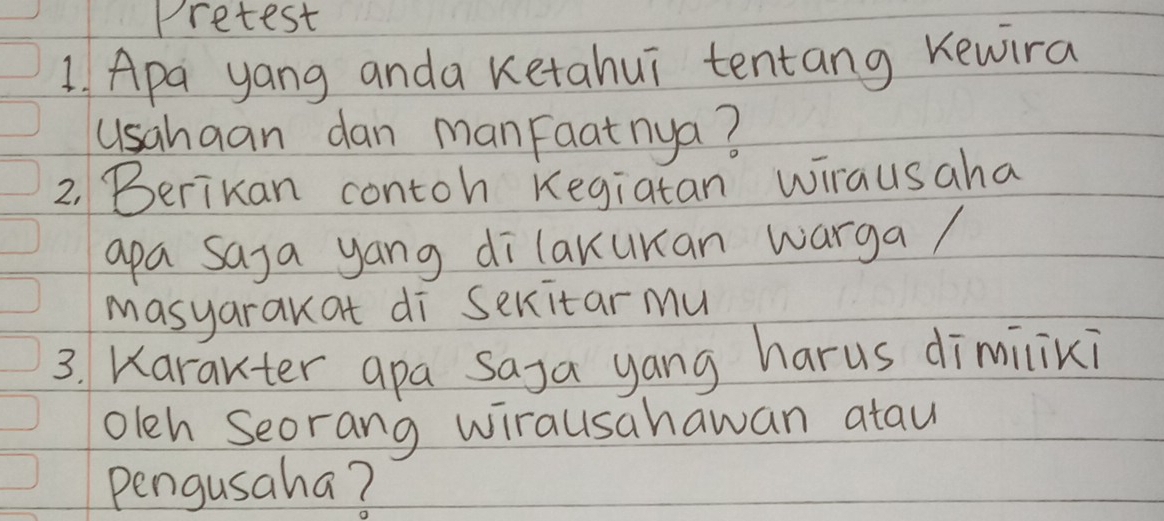 Pretest
1. Apa yang anda ketahui tentang kewira
usahaan dan manfaatnya?
2. Berikan contoh kegiatan wirausaha
apa saja yang dilakukan warga /
masyarakat di sekitarmu
3. Karakter apa saja yang harus dimiliki
oleh seorang wirausahawan atau
pengusaha?